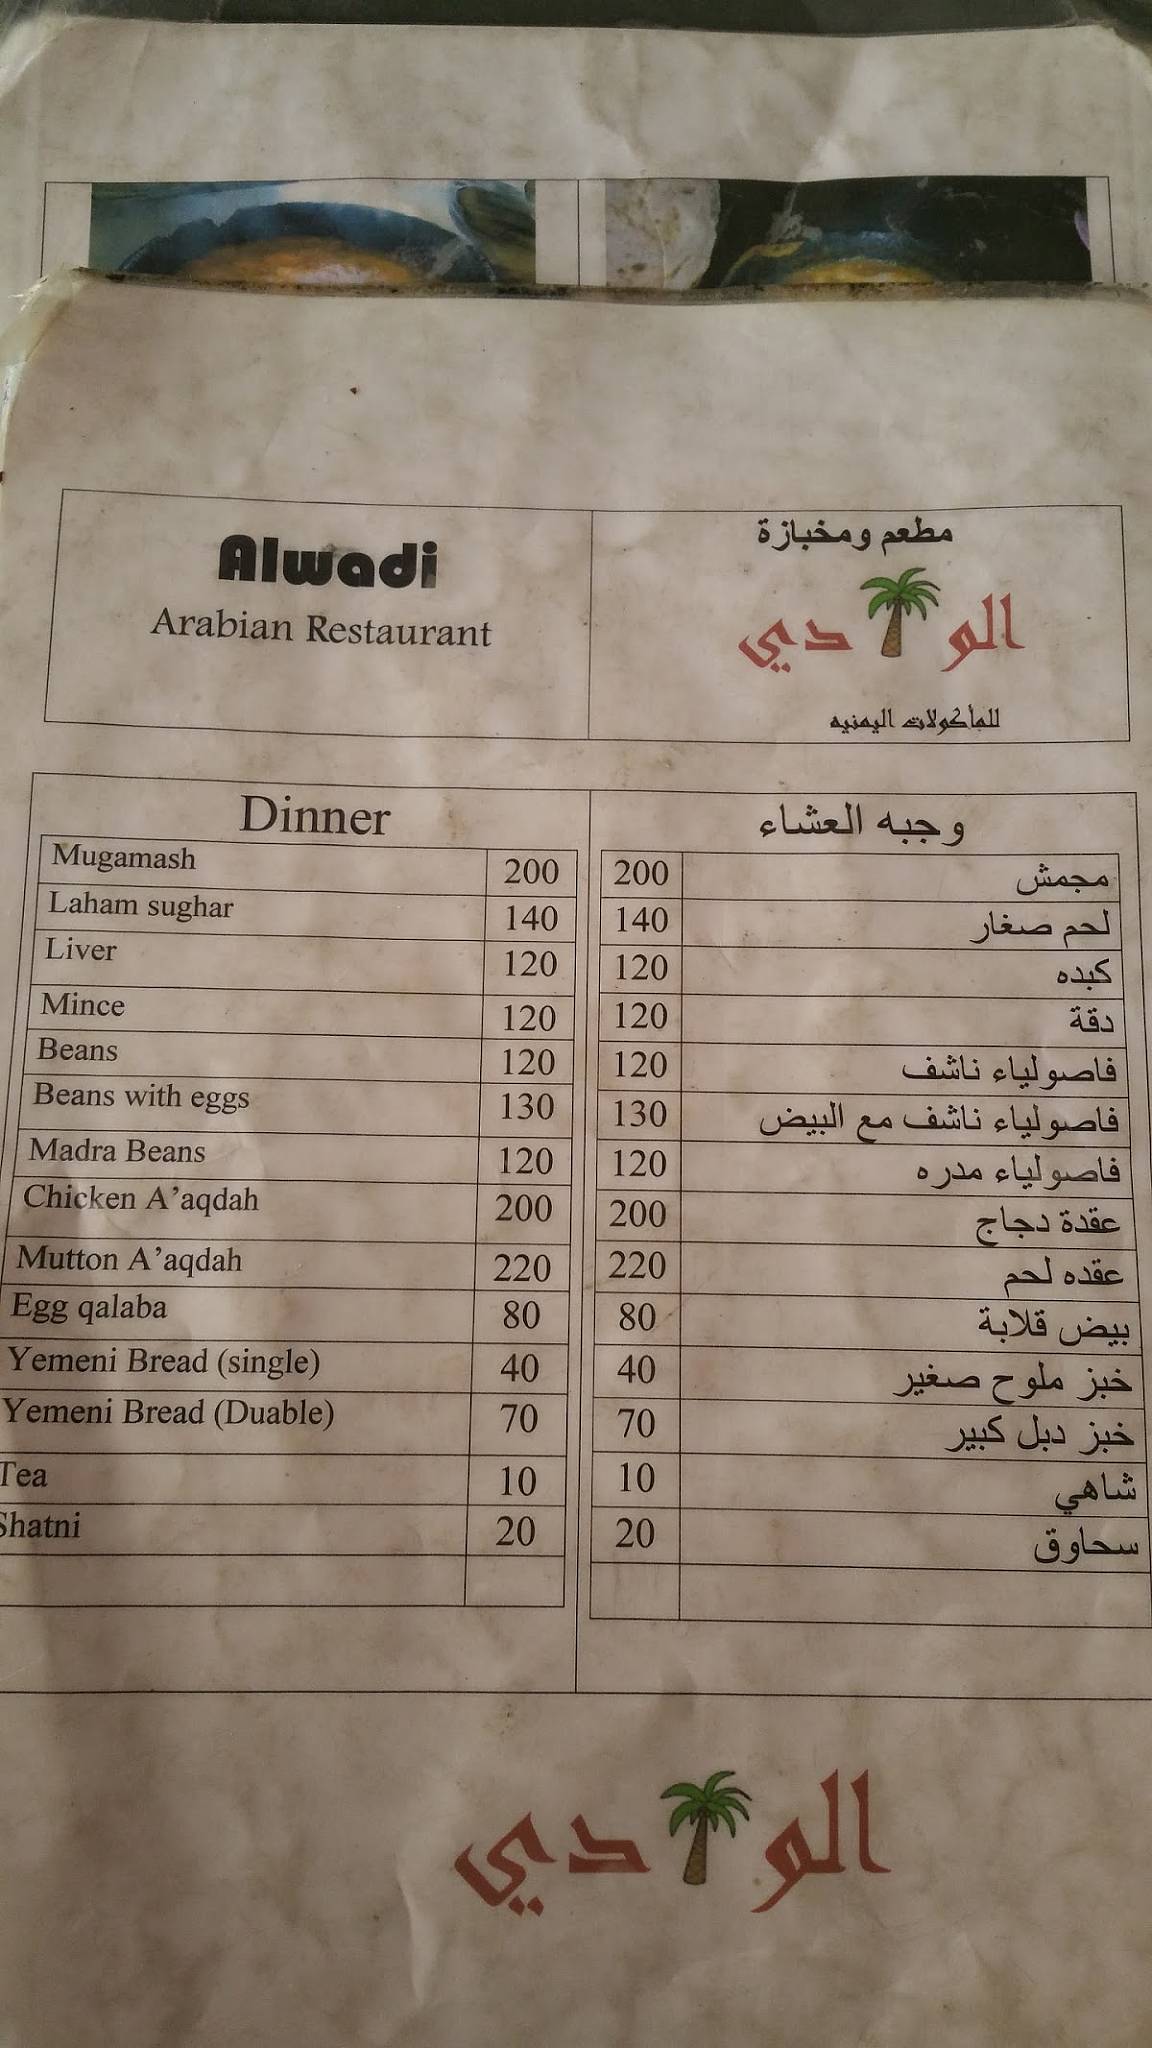 Alwadi
Arabian Restaurant
مطعم ومخبازة
الوادي
للمأكولات اليمنيه
Dinner
Mugamash 200
Laham sughar 140
Liver 120
Mince 120
Beans 120
Beans with eggs 130
Madra Beans 120
Chicken A'aqdah 200
Mutton A'aqdah 220
Egg qalaba 80
Yemeni Bread (single) 40
Yemeni Bread (Duable) 70
Tea 10
Shatni 20
وجبه العشاء
مجمش 200
لحم صغار 140
كبده 120
دقة 120
فاصولياء ناشف 120
فاصولياء ناشف مع البيض 130
فاصولياء مدره 120
عقدة دجاج 200
عقده لحم 220
بيض قلابة 80
خبز ملوح صغير 40
خبز دبل كبير 70
شاهي 10
سحاوق 20
الوادي